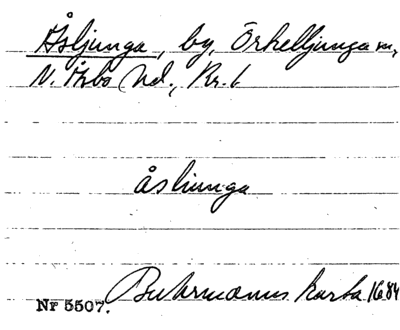 Åsljunga, by, Örkelljunga sn,
N. Åsbo hd., Kr. l
åsljunga
Buhrmanns karta 1684
Nr 5507.